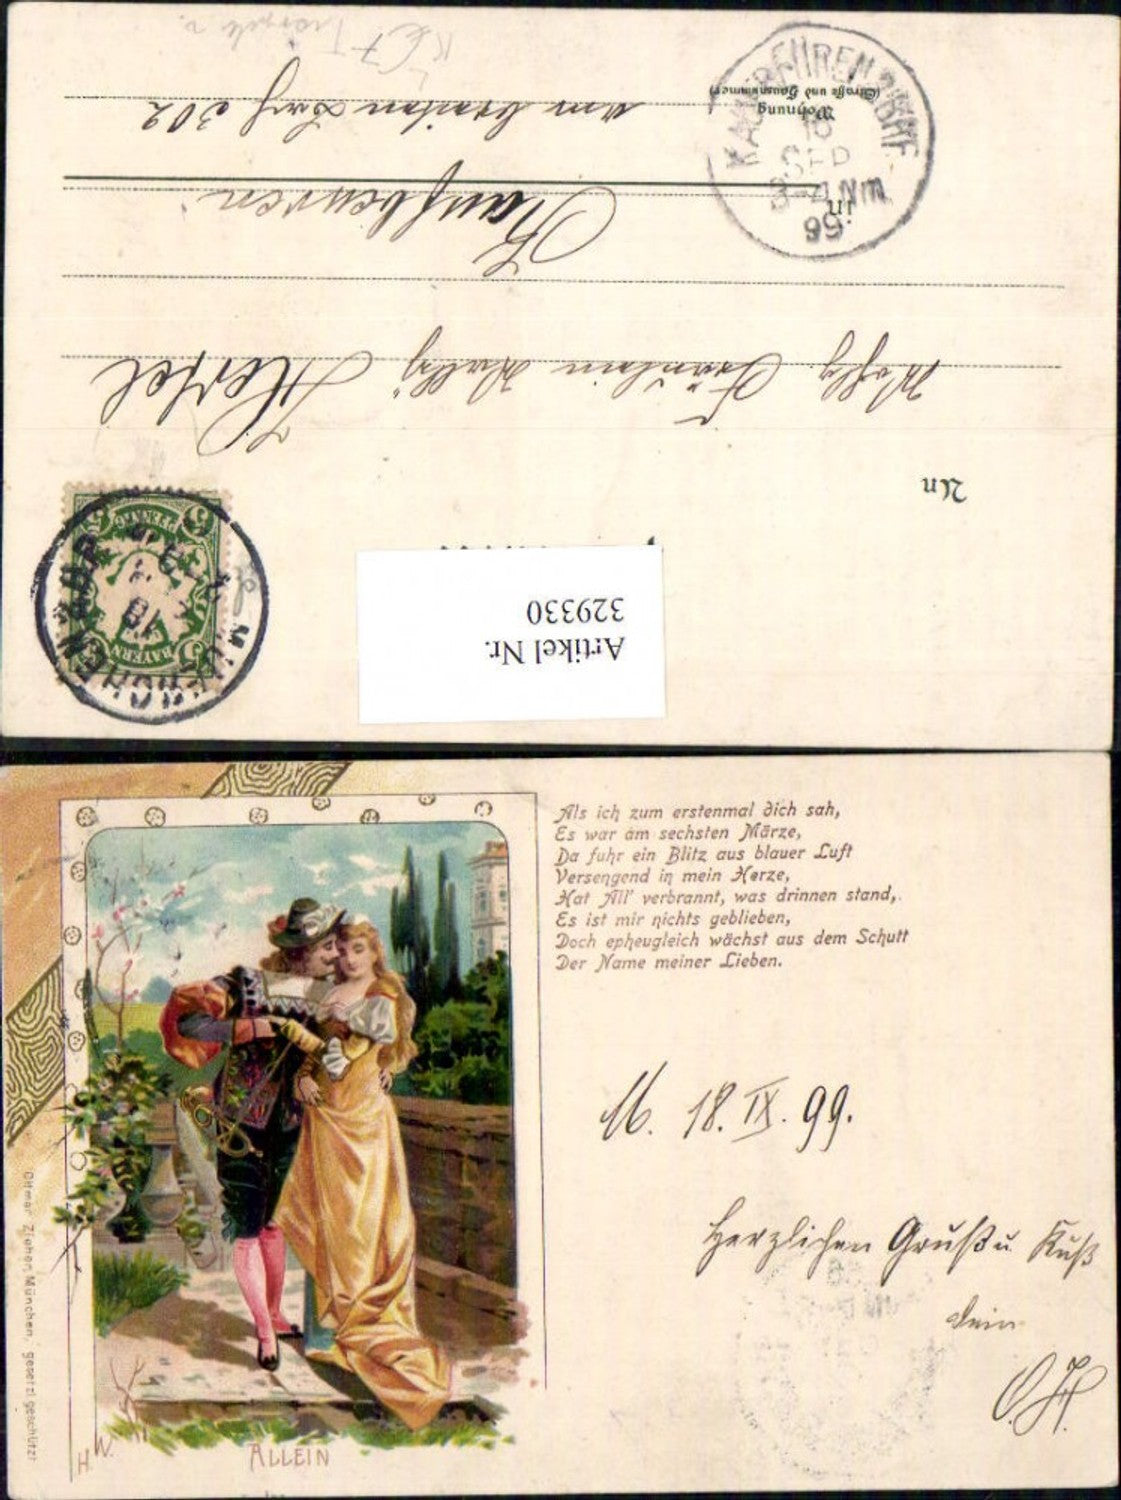 Artikel Nr.
329330
An
Fräulein
Kaufbeuren
302
in
Wohnung
(Straße und Hausnummer)
BAYERN
5 5
PFENNIG
Als ich zum erstenmal dich sah,
Es war am sechsten Märze,
Da fuhr ein Blitz aus blauer Luft
Versengend in mein Herze,
Hat All' verbrannt, was drinnen stand,
Es ist mir nichts geblieben,
Doch epheugleich wächst aus dem Schutt
Der Name meiner Lieben.
M. 18. IX. 99.
Herzlichen Gruß u Kuß
Dein
ALLEIN
H.W.
Ottmar Zieher, München, gesetzl geschützt